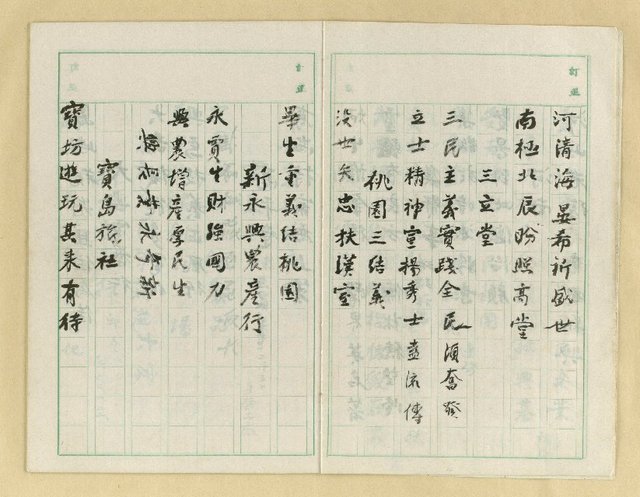 河清海晏希祈盛世
南極北辰盼照高堂
三立堂
三民主義實踐全民須奮發
立士精神宣揚秀士盡流傳
桃園三結義
沒世矢忠扶漢室
畢生重義結桃園
新永興農產行
永賈生財強國力
興農增產厚民生
寶島旅社
寶坊遊玩其来有待